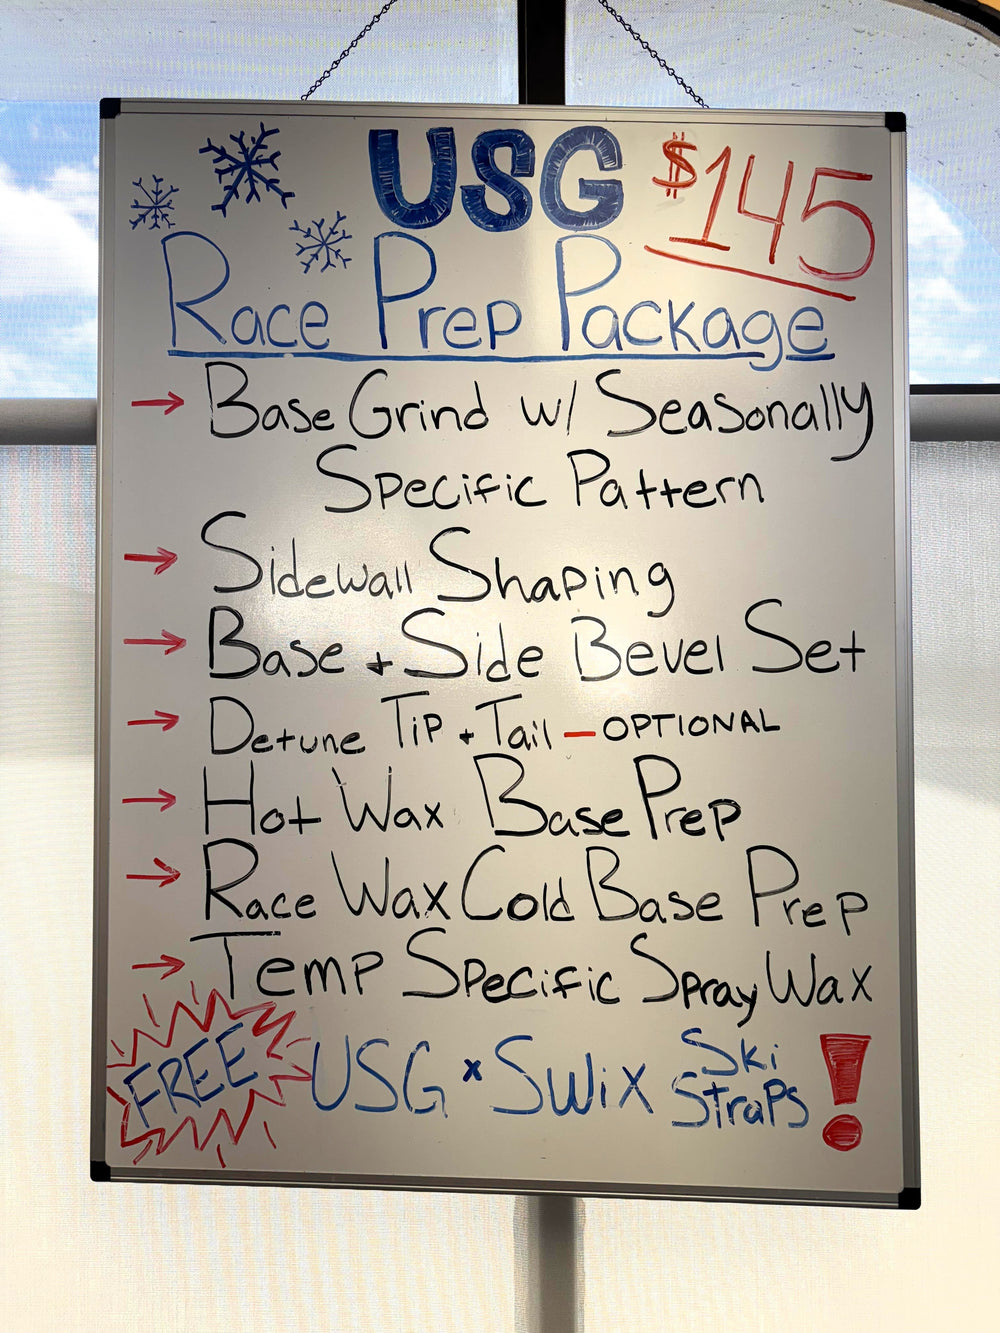 USG $145
Race Prep Package
→ Base Grind w/ Seasonally
Specific Pattern
→ Sidewall Shaping
→ Base + Side Bevel Set
→ Detune Tip + Tail – OPTIONAL
→ Hot Wax Base Prep
→ Race Wax Cold Base Prep
→ Temp Specific Spray Wax
FREE USG x Swix Ski Straps!